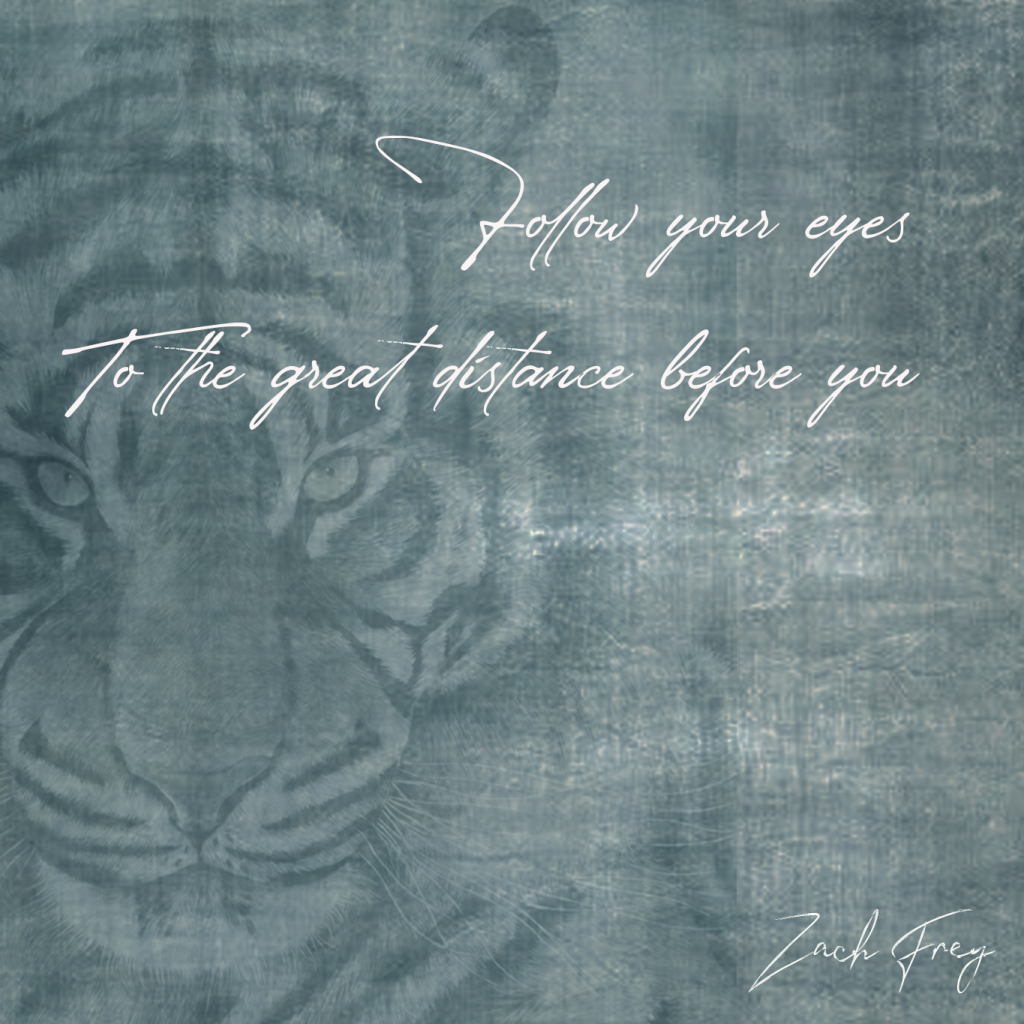 Follow your eyes
To the great distance before you
Zach Frey